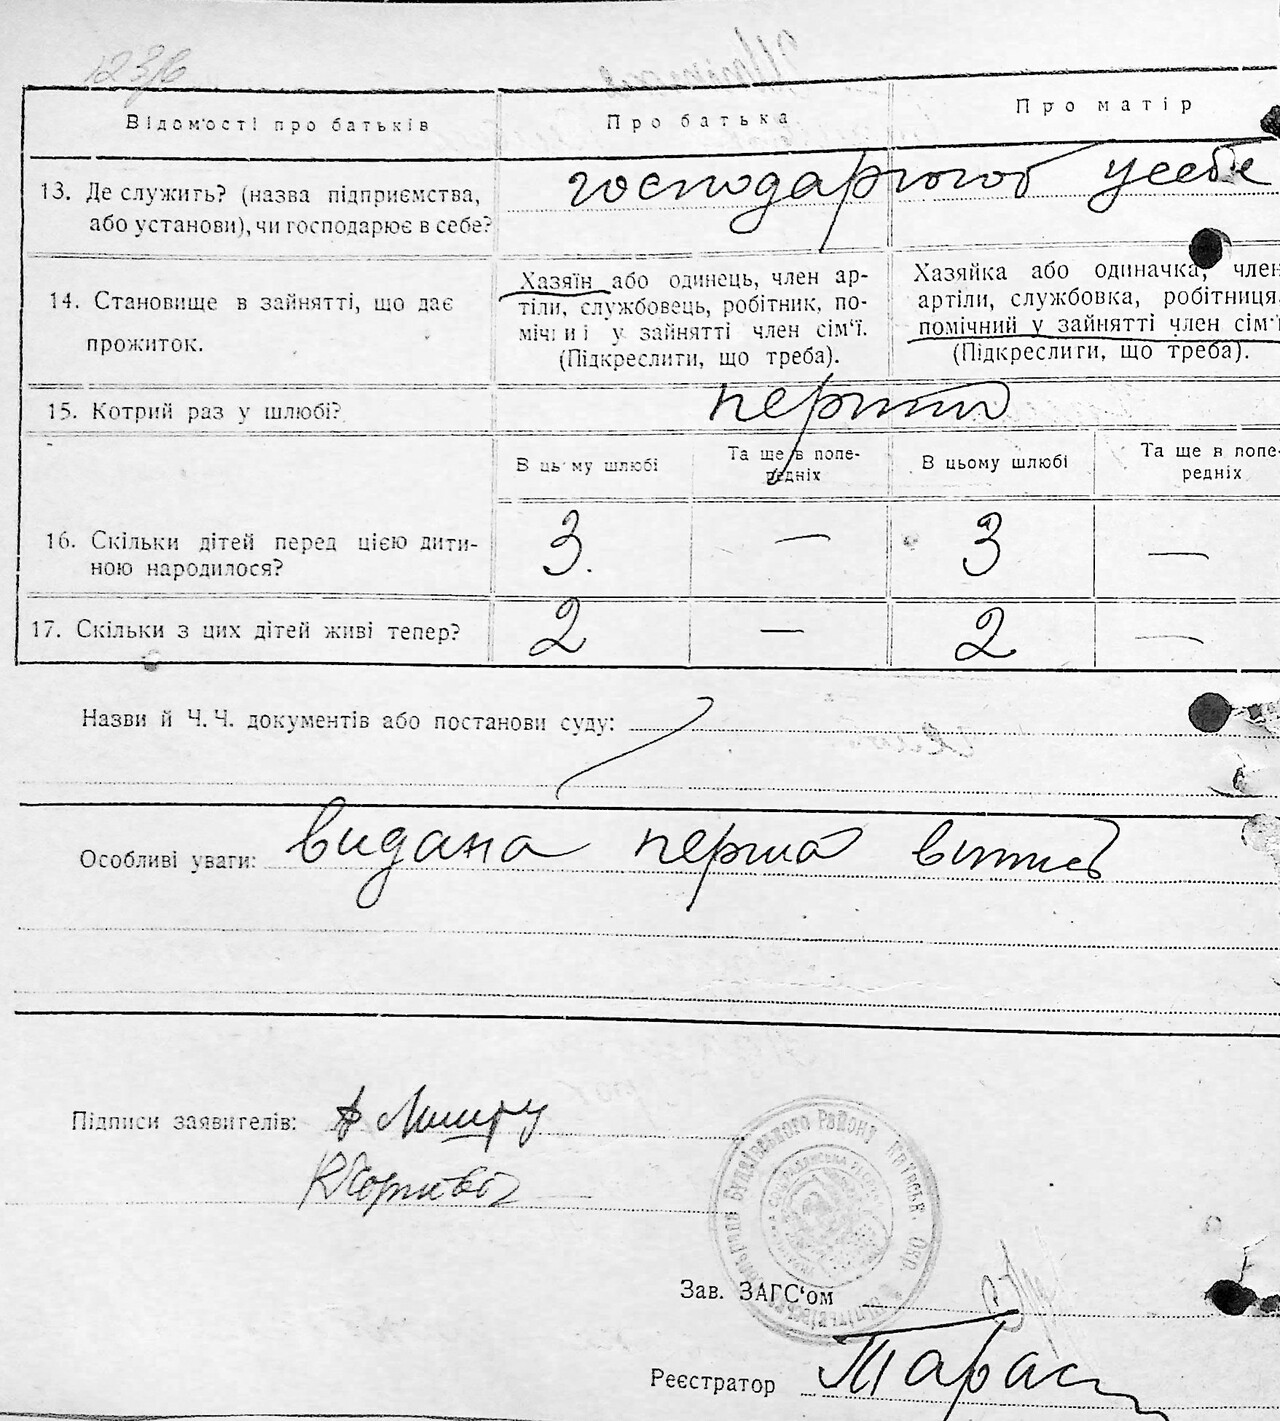 Відомості про батьків
Про батька
Про матір
13. Де служить? (назва підприємства,
або установи), чи господарює в себе?
господарюют у себе
14. Становище в зайнятті, що дає
прожиток.
Хазяїн або одинець, член ар-
тіли, службовець, робітник, по-
мічний у зайнятті член сім'ї.
(Підкреслити, що треба).
Хазяйка або одиначка, член
артіли, службовка, робітниця,
помічний у зайнятті член сім'ї
(Підкреслити, що треба).
15. Котрий раз у шлюбі?
перший
В цьому шлюбі
Та ще в попе-
редніх
В цьому шлюбі
Та ще в попе-
редніх
16. Скільки дітей перед цією дити-
ною народилося?
3. — 3 —
17. Скільки з цих дітей живі тепер?
2 — 2 —
Назви й Ч. Ч. документів або постанови суду:
Особливі уваги: видана перша витпис
Підписи заявителів:
Зав. ЗАГС'ом
Реєстратор Тарас